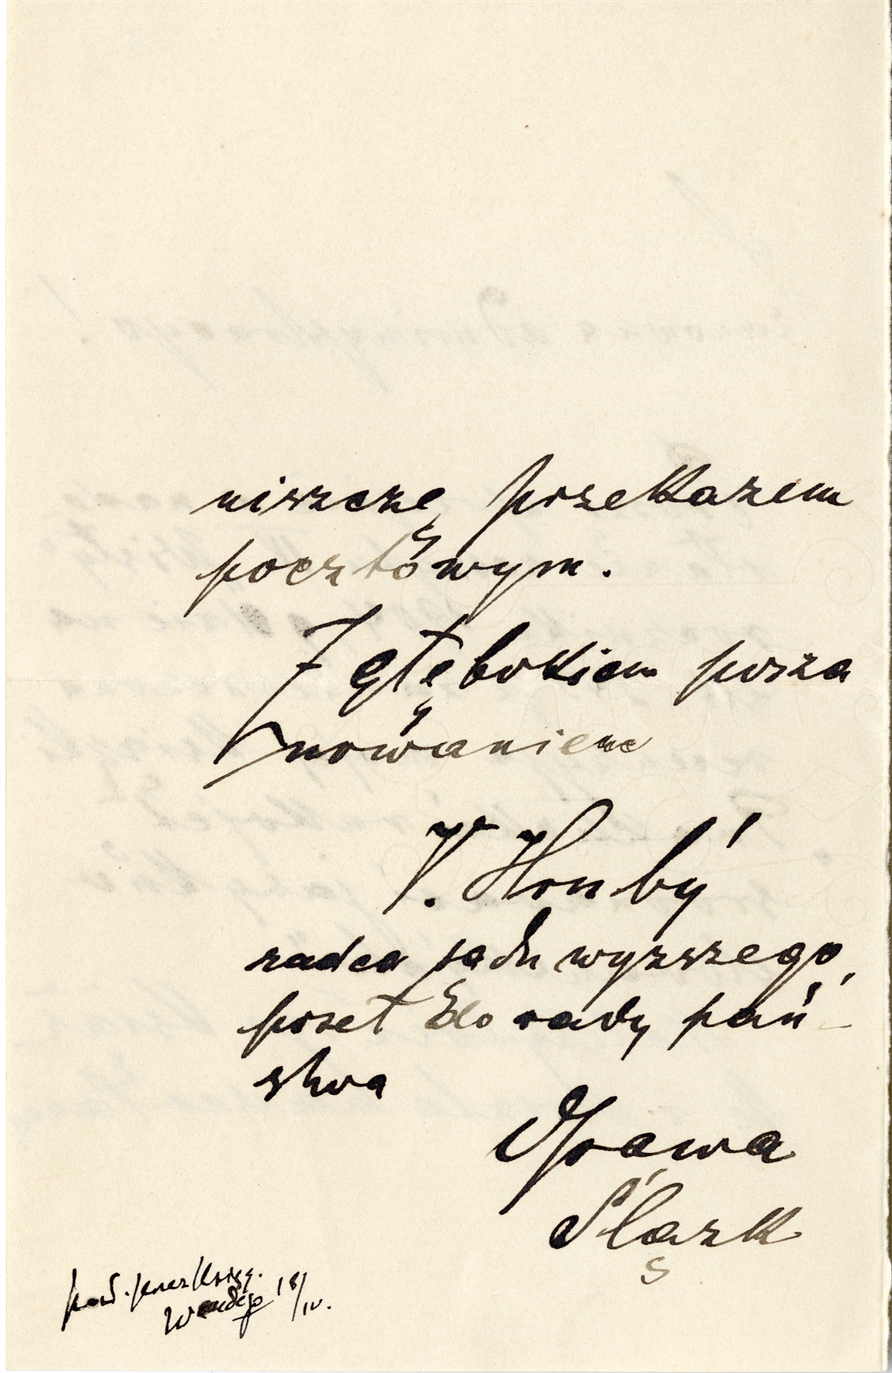 niszczę przekazem
pocztowym.
Z głębokiem posza
nowaniem
V. Hrubý
radca sądu wyższego,
poseł do rady pań-
stwa
Opawa
Śląsk
pod. przez Księg.
18/IV.